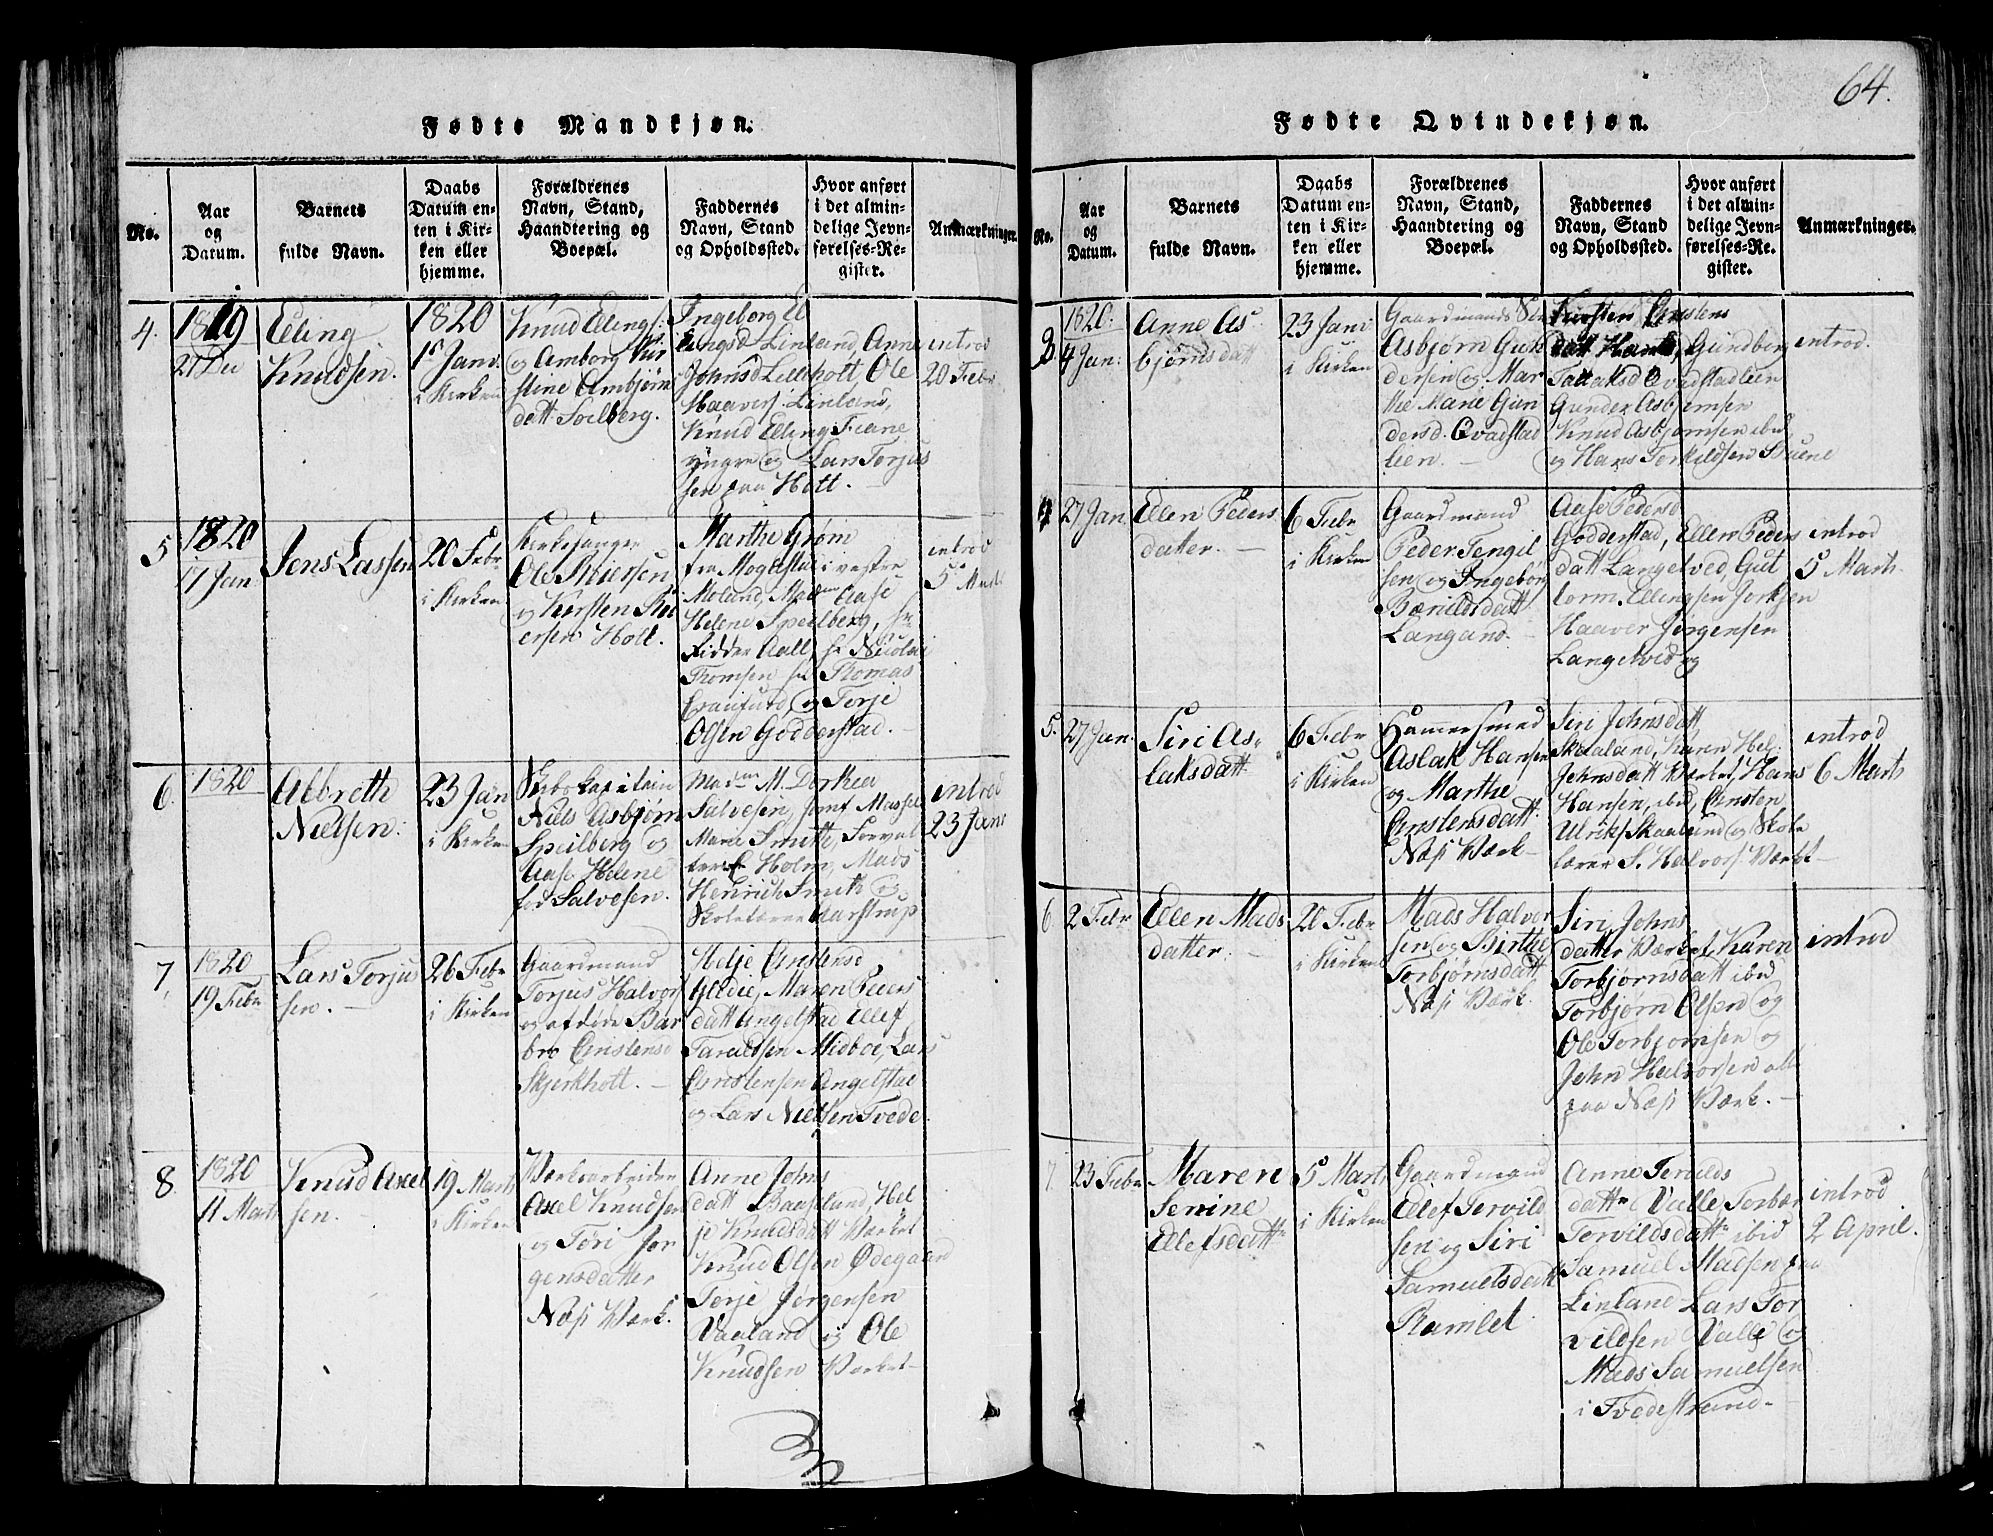 64.
Fødte Mandkjøn.
No.
Aar
og
Datum.
Barnets
fulde Navn.
Daabs
Datum en-
ten i Kir-
ken eller
hjemme.
Forældrenes
Navn, Stand,
Haandtering og
Boepæl.
Faddernes
Navn, Stand
og Opholdssted.
Hvor anført
i det almin-
delige Jevn-
førelses-Re-
gister.
Anmærkninger.
4.
1819
27 Dec
Elling
Knudsen.
1820
1 Janv
i Kirken
Knud Ellings:
og Amborg Kir
stine Ambjørn
datt Soelberg.
Ingeborg El
lingsd Linland, Anne
Johnsd Lilleholt, Ole
Haavers: Linland,
Knud Elling Fiane
yngre og Lars Torjus
sen paa Holt.
introd
20 Febr
5
1820
17 Jan
Jens Lassen
20 Febr
i Kirken
Kirkesanger
Ole Reiersen
og Kirsten Rei
ersen Holt.
Marthe Grøm
fra Moglestue i vestre
Moland, Madm Aase
Helene Speilberg, hr
Ridder Aall, hr Nicolai
Thomsen hr Thomas
Craufurd, og Torje
Olsen Godderstad.
introd
5 Marti
6.
1820
Albreth
Nielsen.
23 Jan
i Kirken
Skibskapitain
Niels Asbjørn
Speilberg og
Aase Helene
fød Salvesen.
Madm M. Dorthea
Salvesen, Jomf
Marie Smith, Forval
ter Holm, Mads
Henrich Smith og
Skolelærer Aarstrup
introd
23 Jan
7.
1820
19 Febr
Lars Torjus
sen.
26 Febr
i Kirken
Gaardmand
Torjus Halvors
og afdøde Bar
bro Christensd
Skjerkholt.
Helje Christensd
Glidie, Maren Peers
datt Angelstad Ellef
Taraldsen Midboe, Lars
Christensen Angelstad
og Lars Nielsen Tvede.
8.
1820
11 Marti
Knud Axel
sen.
19 Marti
i Kirken
Værksarbeider
Axel Knudsen
og Tøri Jør
gensdatter
Næs Værk.
Anne Johns
datt Baaseland, Hel
je Knudsdatt Værket
Knud Olsen Ødegaar
Torje Jørgensen
Vaaland og Ole
Knudsen Værket
Fødte Qvindekjøn.
No.
Aar
og
Datum.
Barnets
fulde Navn.
Daabs
Datum en-
ten i Kir-
ken eller
hjemme.
Forældrenes
Navn, Stand,
Haandtering og
Boepæl.
Faddernes
Navn, Stand
og Opholdssted.
Hvor anført
i det almin-
delige Jevn-
førelses-Re-
gister.
Anmærkninger.
3
1820:
4 Jan:
Anne As
bjørnsdatt
23 Jan:
i Kirken
Gaardmands Søn
Asbjørn Gun
dersen og Mar
the Marie Gun
dersd. Qvadstad
leen.
Kirsten Christens
datt Hant, Gundborg
Tallaksd Qvadstadleen
Gunder Asbjørnsen
Knud Asbjørnsen ibd
og Hans Torkildsen Buene
introd.
4
27 Jan.
Ellen Peders
datter.
6 Febr
i Kirken
Gaardmand
Peder Tengel
sen og Ingeborg
Bænildsdatt
Langand.
Aase Pedersd
Godderstad, Ellen Peders
datt Langetved Gut
torm Ellingsen Jorkjen
Haaver Jørgensen
Langetved og
introd
5 Marti
5.
27 Jan.
Siri As
laksdatt
6 Febr
i Kirken
Hammersmed
Aslak Hansen
og Marthe
Christensdatt
Næs Værk
Siri Johnsdatt
Skaaland, Karen Hel:
Johnsdatt Værket, Hans
Hansen, ibid, Christen
Ulriks Skaaland og Skole
lærer S. Halvors: Værket
introd
6 Marti
6.
2 Febr
Ellen Mads
datter.
20 Febr
i Kirken
Mads Halvor
sen og Birthe
Torbjørnsdatt
Næs Værk.
Siri Johns
datter Værket, Karen
Torbjørnsdatt ibid
Torbjørn Olsen og
Ole Torbjørnsen og
John Halvorsen alle
paa Næs Værk.
introd
7.
23 Febr
Maren
Senine
Ellefsdattr
5 Marti
i Kirken
Gaardmand
Ellef Tervild
sen og Siri
Samuelsdatt
Ramlet
Anne Tervilds
dattr Valle Torbær
Tervildsdattr ibid
Samuel Madsen paa
Linland Lars Tor
vildsen Valle og
Mads Samuelsen
i Tvedestrand.
introd
2 April.